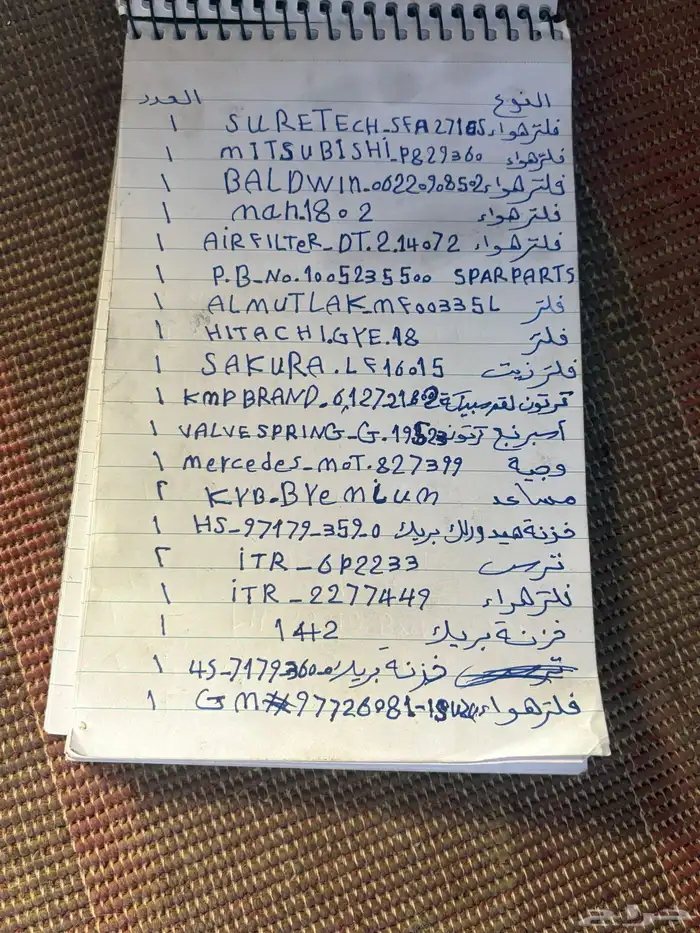 النوع العدد
فلتر هواء SURETECH_SFA2718S ١
فلتر هواء MITSUBISHI_P829360 ١
فلتر هواء BALDWIN_06220908502 ١
فلتر هواء man.1802 ١
فلتر هواء AIRFILTER_DT.2.14072 ١
P.B_No.1005235500 SPARPARTS ١
فلتر ALMUTLAK_MF00335L ١
فلتر HITACHI.GYE.18 ١
فلتر زيت SAKURA.LF16015 ١
كرتون لقم سبيكة KMPBRAND_ ١
اسبرنج كرتون VALVESPRING_G. ١
وجية mercedes_moT.827399 ١
مساعد KYB.BYEMiUM ٢
خزنة هيدورلك بريك HS_97179_359_0 ١
ترس iTR_6P2233 ٢
فلتر هواء iTR_2277449 ١
خزنة بريك 1442 ١
خزنة بريك 4S_7179_360_0 ١
فلتر هواء GM#97726081- ١
حراج